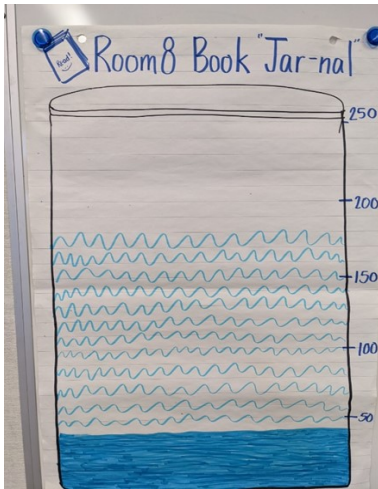 Read!
Room 8 Book "Jar-nal"
250
200
150
100
50